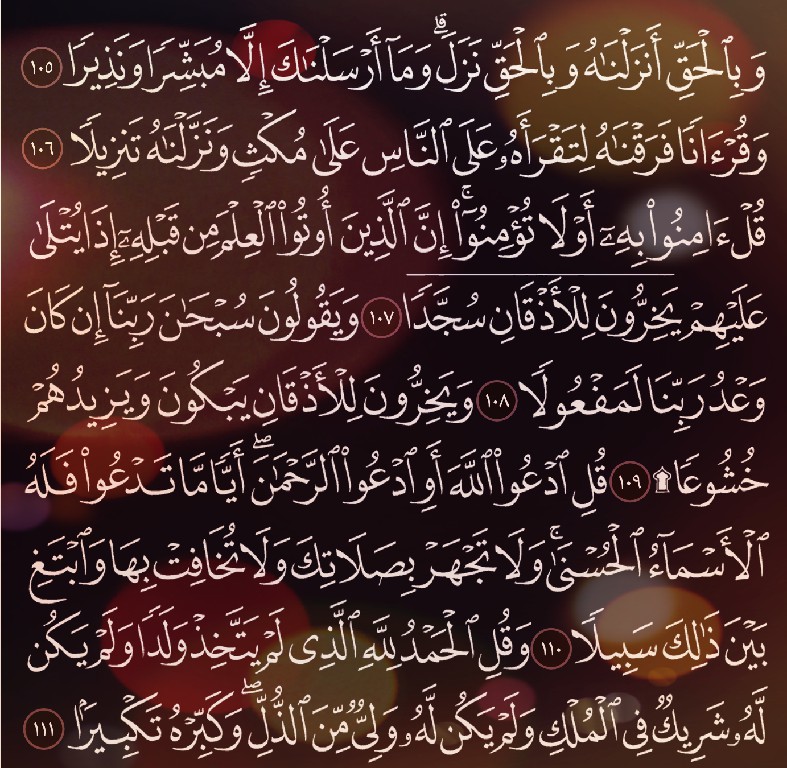 وَبِٱلْحَقِّ أَنزَلْنَٰهُ وَبِٱلْحَقِّ نَزَلَ ۗ وَمَآ أَرْسَلْنَٰكَ إِلَّا مُبَشِّرًا وَنَذِيرًا ١٠٥
وَقُرْءَانًا فَرَقْنَٰهُ لِتَقْرَأَهُۥ عَلَى ٱلنَّاسِ عَلَىٰ مُكْثٍ وَنَزَّلْنَٰهُ تَنزِيلًا ١٠٦
قُلْ ءَامِنُوا۟ بِهِۦٓ أَوْ لَا تُؤْمِنُوٓا۟ ۚ إِنَّ ٱلَّذِينَ أُوتُوا۟ ٱلْعِلْمَ مِن قَبْلِهِۦٓ إِذَا يُتْلَىٰ
عَلَيْهِمْ يَخِرُّونَ لِلْأَذْقَانِ سُجَّدًا ١٠٧ وَيَقُولُونَ سُبْحَٰنَ رَبِّنَآ إِن كَانَ
وَعْدُ رَبِّنَا لَمَفْعُولًا ١٠٨ وَيَخِرُّونَ لِلْأَذْقَانِ يَبْكُونَ وَيَزِيدُهُمْ
خُشُوعًا ۩ ١٠٩ قُلِ ٱدْعُوا۟ ٱللَّهَ أَوِ ٱدْعُوا۟ ٱلرَّحْمَٰنَ ۖ أَيًّا مَّا تَدْعُوا۟ فَلَهُ
ٱلْأَسْمَآءُ ٱلْحُسْنَىٰ ۚ وَلَا تَجْهَرْ بِصَلَاتِكَ وَلَا تُخَافِتْ بِهَا وَٱبْتَغِ
بَيْنَ ذَٰلِكَ سَبِيلًا ١١٠ وَقُلِ ٱلْحَمْدُ لِلَّهِ ٱلَّذِى لَمْ يَتَّخِذْ وَلَدًا وَلَمْ يَكُن
لَّهُۥ شَرِيكٌ فِى ٱلْمُلْكِ وَلَمْ يَكُن لَّهُۥ وَلِىٌّ مِّنَ ٱلذُّلِّ ۖ وَكَبِّرْهُ تَكْبِيرًۢا ١١١